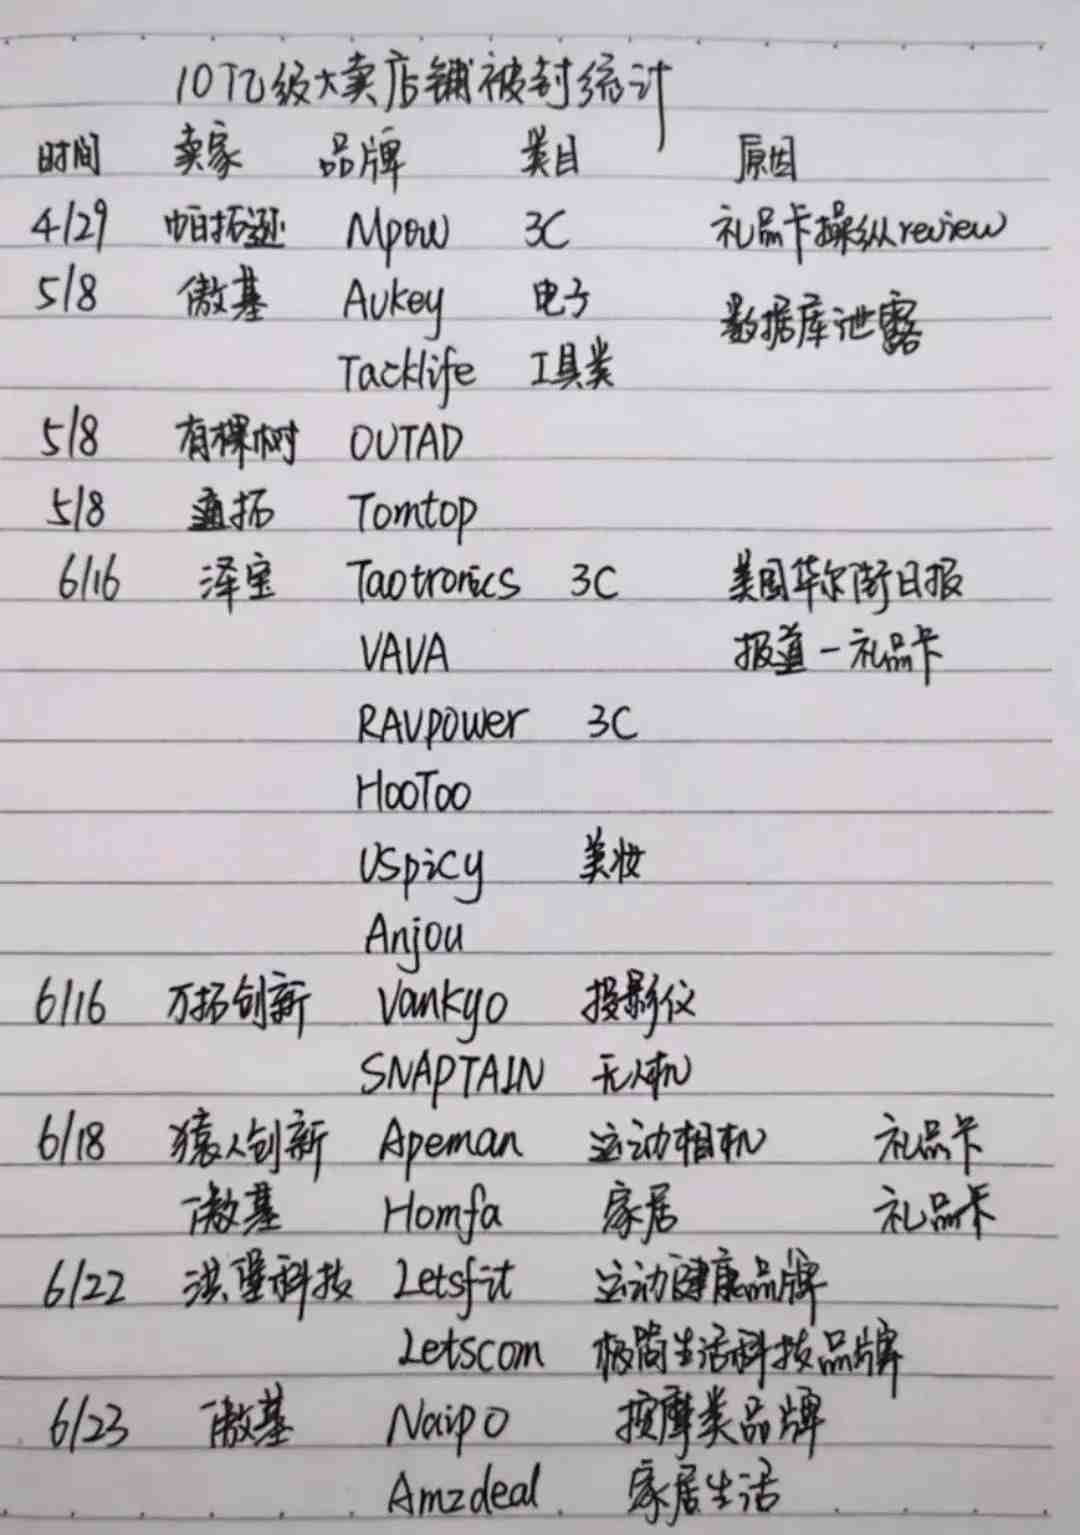 10亿级大卖店铺被封统计
时间 卖家 品牌 类目 原因
4/29 帕拓逊 Mpow 3C 礼品卡操纵review
5/8 傲基 Aukey 电子 数据库泄露
Tacklife 工具类
5/8 有棵树 OUTAD
5/8 通拓 Tomtop
6/16 泽宝 Taotronics 3C 美国华尔街日报
VAVA 报道一礼品卡
RAVPOWer 3C
HooToo
USpicy 美妆
Anjou
6/16 万拓创新 Vankyo 投影仪
SNAPTAIN 无人机
6/18 猿人创新 Apeman 运动相机 礼品卡
傲基 Homfa 家居 礼品卡
6/22 洪堡科技 Letsfit 运动健康品牌
Letscom 极简生活科技品牌
6/23 傲基 Naipo 按摩类品牌
Amzdeal 家居生活